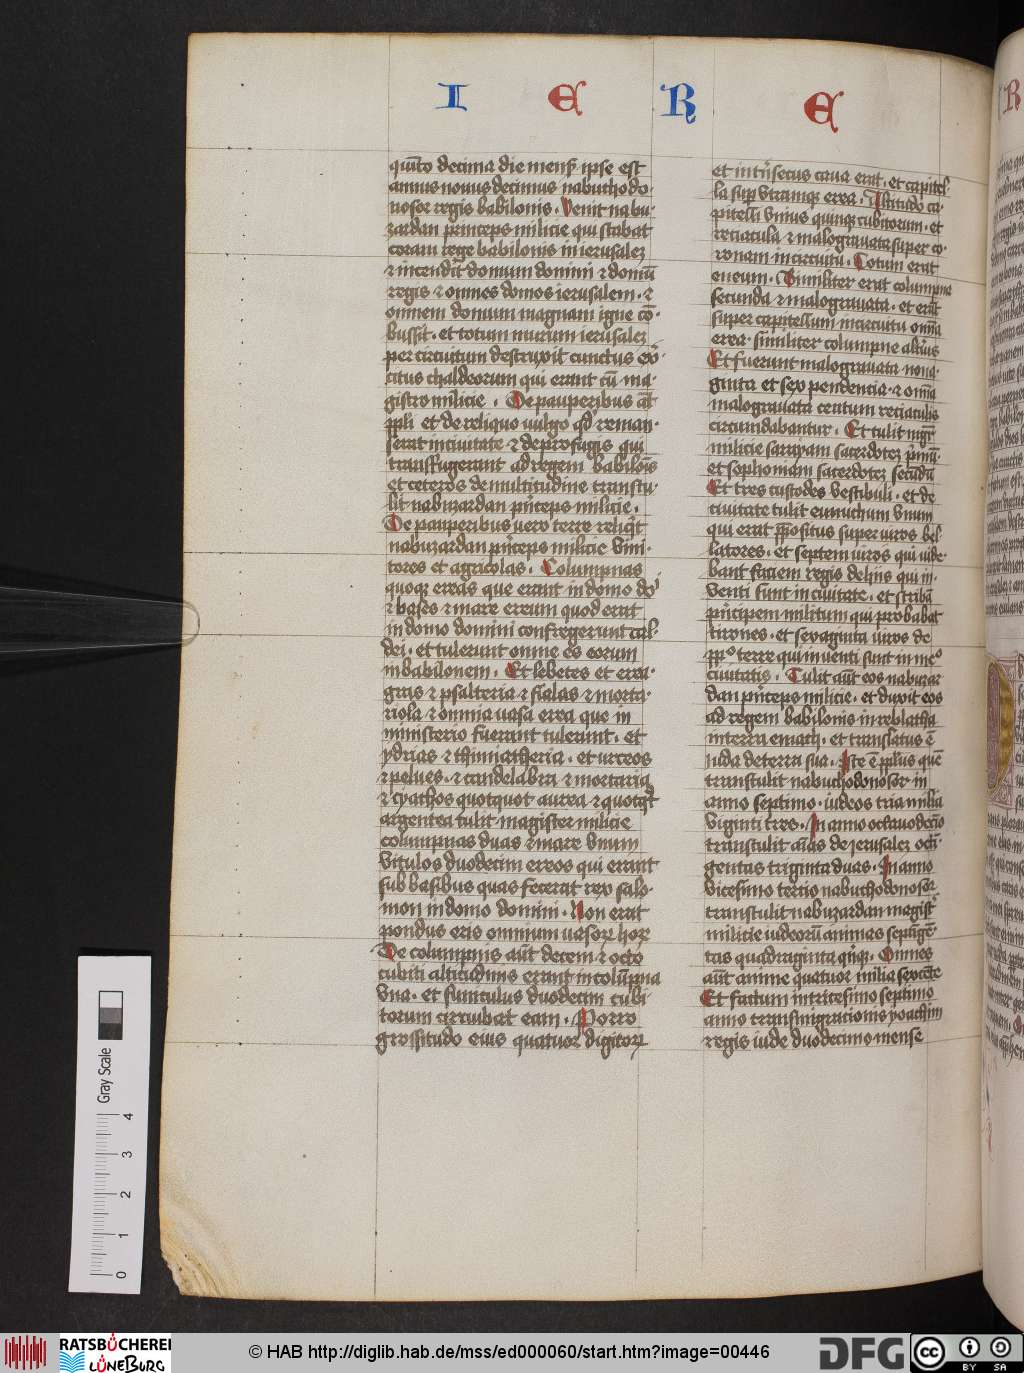 I E R E
quīto decima die menẜ ipse est
annus nonus decimus nabuchodo·
nosor regis babilonis · Venit nabu·
zardan princeps milicie qui stabat
coram rege babilonis in ierusalez
⁊ incendit domum domini ⁊ domū
regis ⁊ omnes domos ierusalem · ⁊
omnem domum magnam igne cō·
bussit · et totum murum ierusalez
per circuitum destruxit cunctus ex̄·
citus chaldeorum qui erant cū ma·
gistro milicie · De pauperibus aūt
ppl̄i et de reliquo vulgo qd̄ reman·
serat in ciuitate ⁊ de profugis qui
transfugerant ad regem babilōis
et ceteros de multitudine transtu·
lit nabuzardan prīceps milicie ·
De pauperibus uero terre reliq̄t
nabuzardan prīceps milicie vini·
tores et agricolas · Columpnas
quoqꝫ ereas que erant in domo dō
⁊ bases ⁊ mare ereum quod erat
in domo domini confregerunt cal·
dei · et tulerunt omne es eorum
in babilonem · Et lebetes et crea·
gras ⁊ psalteria ⁊ fialas ⁊ morta·
riola ⁊ omnia uasa erea que in
ministerio fuerant tulerunt · et
ydrias ⁊ thimiatheria · et urceos
⁊ pelues · ⁊ candelabra ⁊ mortaria
⁊ cyathos quotquot aurea ⁊ quotqt̄
argentea tulit magister milicie
columpnas duas ⁊ mare vnum
vitulos duodecim ereos qui erant
sub basibus quas fecerat rex salo·
mon in domo domini · Non erat
pondus eris omnium uasorꝝ horꝝ
De columpnis aūt decem ⁊ octo
cubiti altitudinis erant in colūpna
vna · et funiculus duodecim cubi
torum circuibat eam · Porro
grossitudo eius quatuor digitorꝝ
et intrīsecus caua erat · et capitel·
la sup vtramqꝫ erea · Altitudo ca·
pitelli vnius quinqꝫ cubitorum · et
reciacula ⁊ malogranata super co·
ronam in circuitu · Totum erat
eneum · Similiter erat columpne
secunda ⁊ malogranata · et erāt
super capitellum in circuitu omīa
erea · similiter columpne alt̄ius
Et fuerunt malogranata nona·
ginta et sex pendencia · ⁊ omīa
malogranata centum reciaculis
circumdabantur · Et tulit mgr̄
milicie sarayam sacerdotez p̄mū·
et sophoniam sacerdotez secūdū
Et tres custodes vestibuli · et de
ciuitate tulit eunuchum vnum
qui erat p̄positus super uiros bel·
latores · et septem uiros qui uide·
bant faciem regis de hijs qui in·
uenti sunt in ciuitate · et scribā
prīcipem militum qui probabat
tirones · et sexaginta uiros de
ppl̄o terre qui inuenti sunt in meº
ciuitatis · Tulit aūt eos nabuzar
dan prīceps milicie · et duxit eos
ad regem babilonis in reblatha
in terra emath · et translatus ē
iuda de terra sua · Iste ē ppl̄us quē
transtulit nabuchodonosor in
anno septimo · iudeos tria milia
viginti tres · In anno octauodecīo
transtulit aīas de ierusalez octī·
gentas triginta duas · In anno
vicesimo tercio nabuchodonosor
transtulit nabuzardan magist̄
milicie iudeorū animas septīgē·
tas quadraginta qīqꝫ · Omnes
aūt anime quatuor milia sexcēte
Et factum in tricesimo septimo
anno transmigracionis yoachim
regis iude duodecimo mense
Gray Scale
4
3
2
1
0
RATSBÜCHEREI
LÜNEBURG
© HAB http://diglib.hab.de/mss/ed000060/start.htm?image=00446
DFG
cc
BY SA